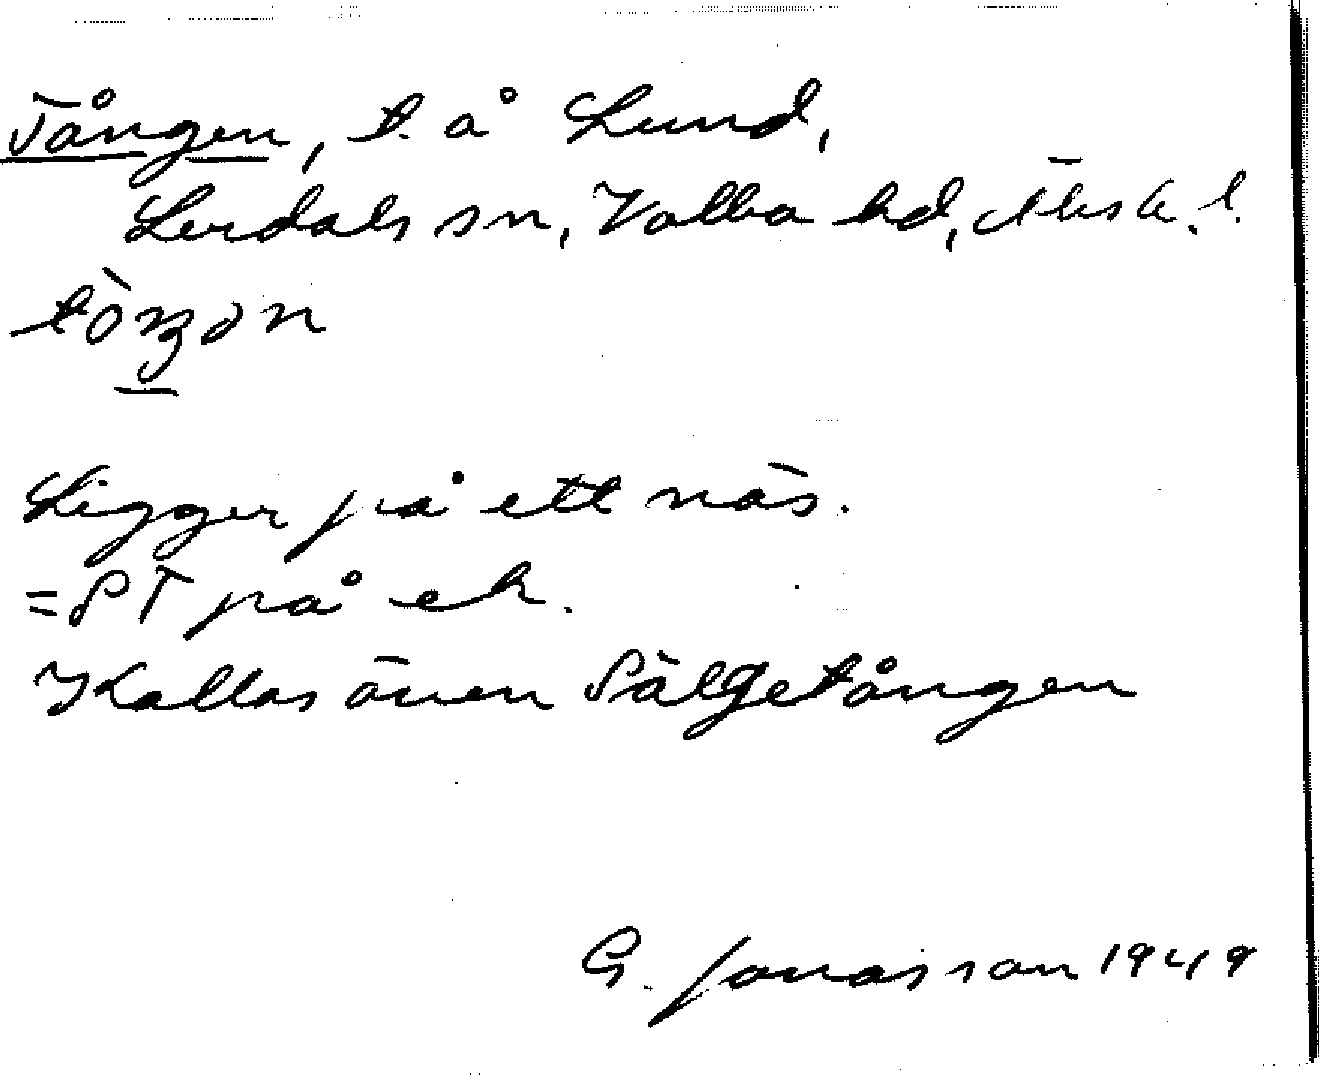 Tången, t. å Lund,
Lerdals sn, Valbo hd, Älvsb. l.
Ligger på ett näs.
= PT på ek.
Kallas även Sälgetången
G. Jonasson 1949